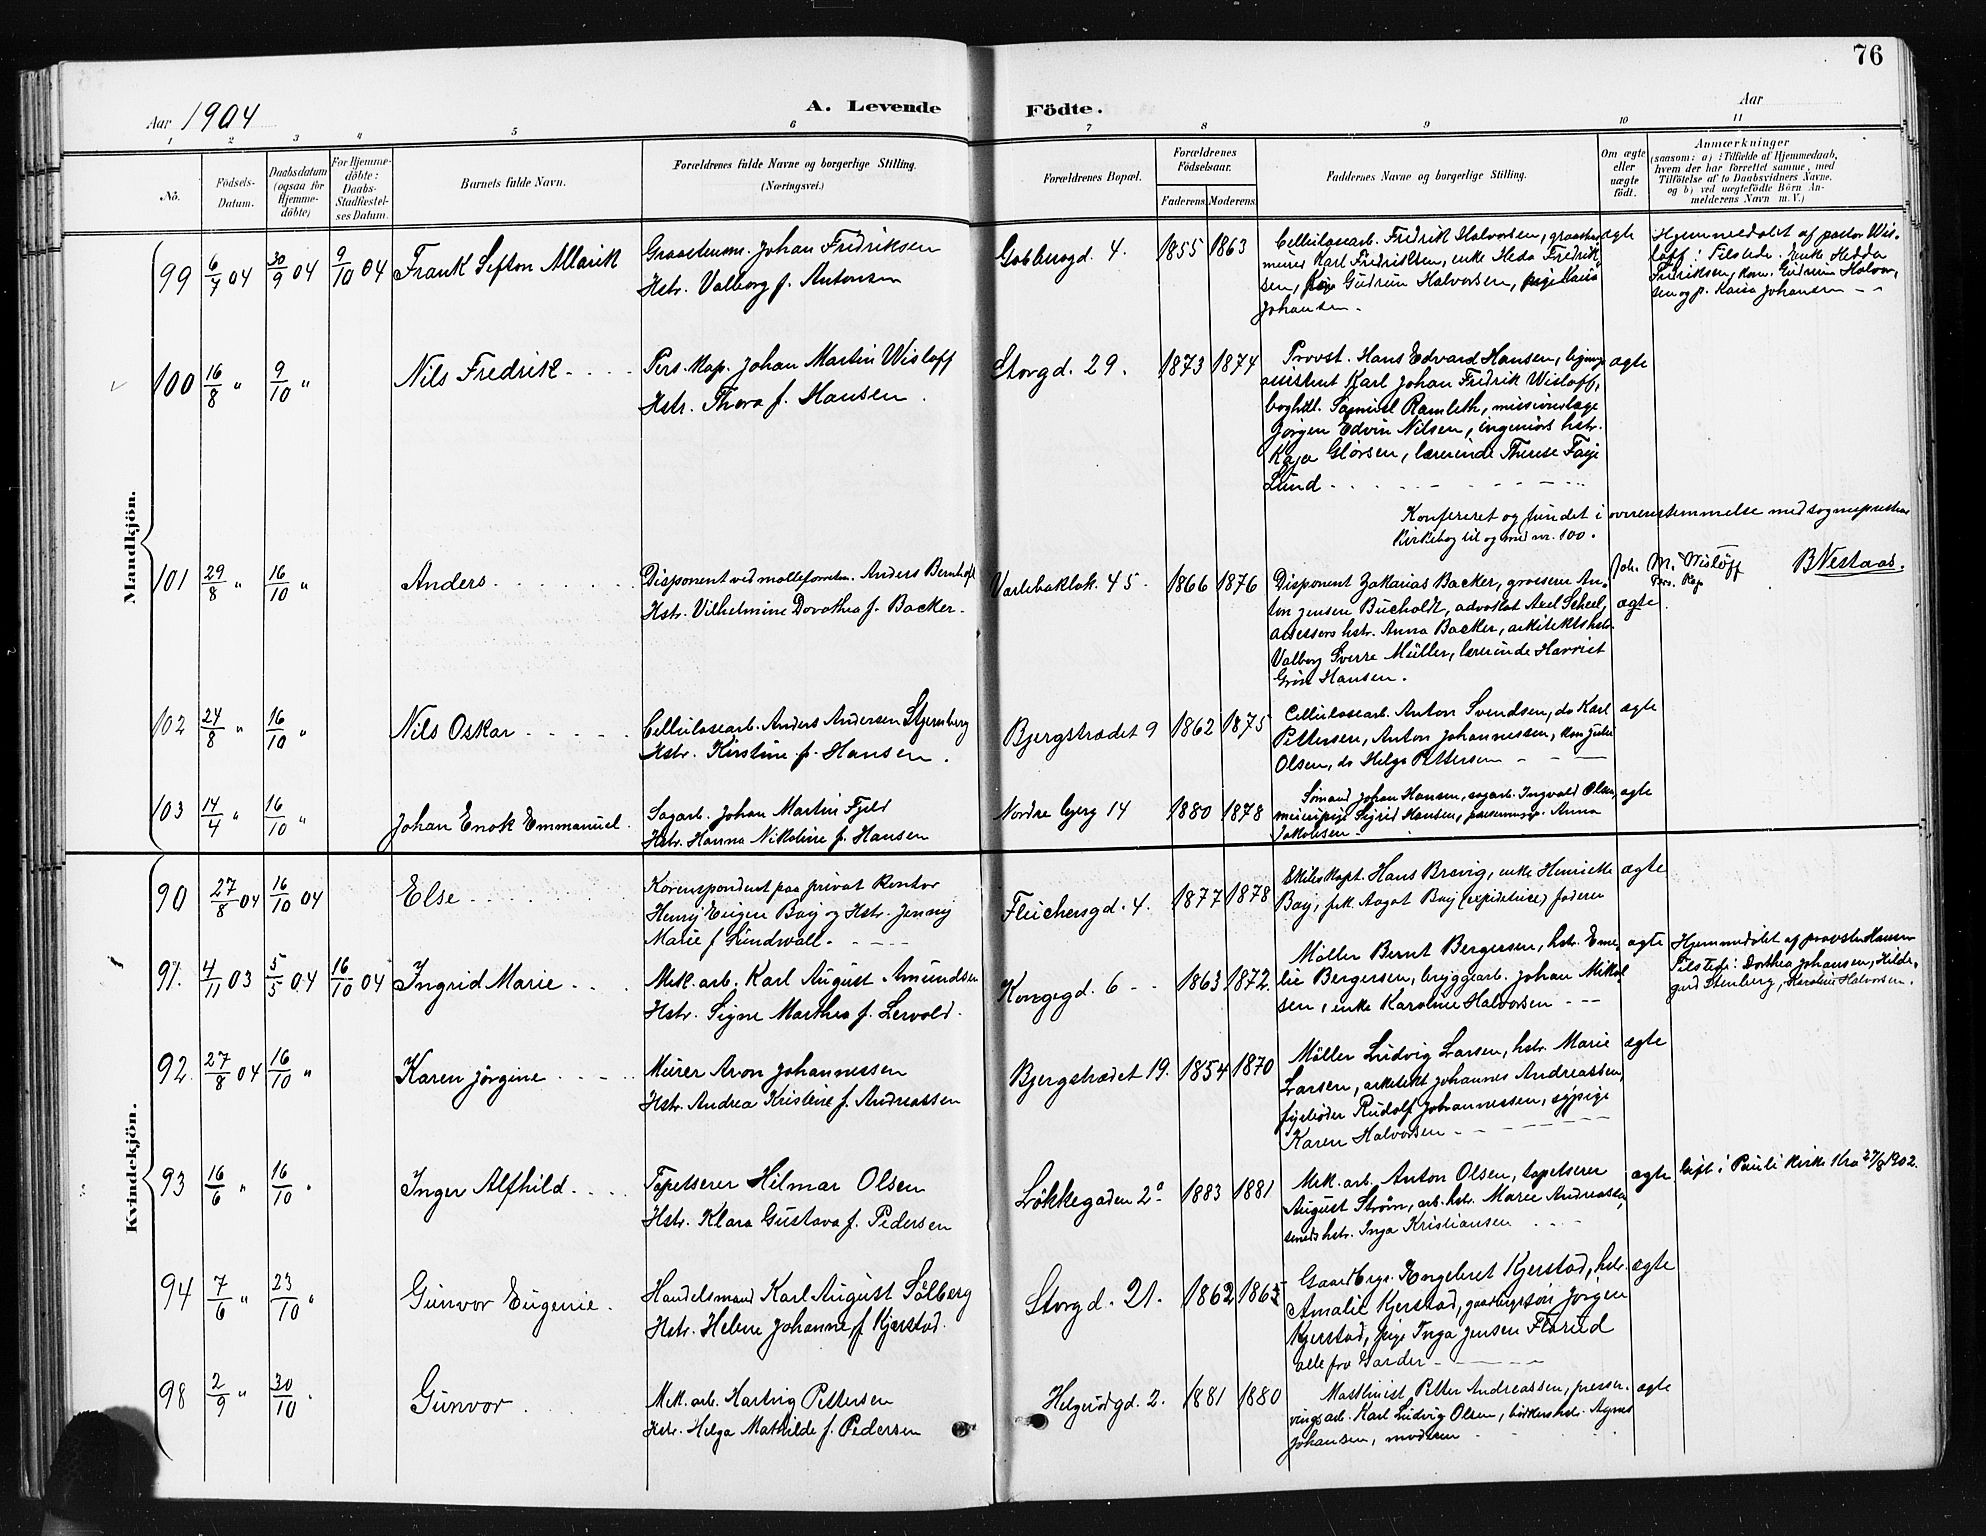 76
Aar 1904
A. Levende Födte.
Aar
1 2 3 4 5 6 7 8 9 10 11
No.
Födsels-Datum.
Daabsdatum (ogsaa for Hjemme-döbte)
For Hjemme-döbte: Daabs-Stadfæstel-ses Datum.
Barnets fulde Navn.
Forældrenes fulde Navne og borgerlige Stilling. (Næringsvei.)
Forældrenes Bopæl.
Forældrenes Födselsaar.
Faderens Moderens
Faddernes Navne og borgerlige Stilling.
Om ægte eller uægte födt.
Anmærkninger
(saasom: a) i Tilfælde af Hjemmedaab, hvem der har forrettet samme, med Tilföielse af to Daabsvidners Navne, og b) ved uægtefödte Börn An-melderens Navn m. V.)
Mandkjön.
99 6/7 04 30/9 04 9/10 04 Frank Sefton Allarik
Johan Fredriksen
Hstr. Valborg f. Antonsen
4. 1855 1863
Cellulosearb. Fredrik Halvorsen,
murer Karl Fredriksen, enke Heda Fredrik-
sen, Gudrun Halvorsen, pige Kaisa
Johansen.
ægte
Hjemmedöbt af pastor Wis-
löff: Tilstede. Enke Hedda
Fredriksen, kone Gudrun Halvor-
sen og p. Kaisa Johansen - -
100 16/8 " 9/10 " Nils Fredrik
Pers. Kap. Johan Martin Wisløff
Hstr. Thora f. Hansen.
Storgd. 29. 1873 1874
Provst. Hans Edvard Hansen,
assistent Karl Johan Fredrik Wisløff,
boghdl. Samuel Ramleth, missionslæge
Jørgen Edvin Nilsen, ingeniørs hstr.
Kaja Glørsen, lærerinde Therese Faye
Lund
ægte
Konfereret og fundet i overensstemmelse med sogneprestens
kirkebog til og med nr. 100.
Joh. M. Wisløff
Pers. Kap.
B Nestaas.
101 29/8 " 16/10 " Anders
Disponent ved Anders Bernhoft
Hstr. Vilhelmine Dorothea f. Backer.
45 1866 1876
Disponent Zakarias Backer, grosserer An-
ton Jensen Bucholdt, advokat Axel Scheel,
assessors hstr. Anna Backer, arkitekts hstr.
Valborg Sverre Müller, lærerinde Harriet
Grön Hansen.
ægte
102 24/8 " 16/10 " Nils Oskar
Cellulosearb. Anders Andersen Stjernberg
Hstr. Kirstine f. Hansen.
Bjergstrædet 9 1862 1875
Cellulosearb. Anton Svendsen, do Karl
Pettersen, Anton Johannessen, kone
Olsen, do Helga Pettersen
ægte
103 14/4 " 16/10 " Johan Enok Emmanuel.
Sagarb. Johan Martin Fjeld
Hstr. Hanna Nikoline f. Hansen
Nordre bjerg 14 1880 1878
Sømand Johan Hansen, sagarb. Ingvald Olsen,
Sigrid Hansen, Anna
Jakobsen
ægte
Kvindekjön.
90 27/8 04 16/10 04 Else
Korrespondent paa privat kontor
Henry Eugen Bay og Hstr. Jenny
Marie f Lindwall.
4. 1877 1878
Skibskapt. Hans Brevig, enke Henriette
Bay, frk. Aagot Bay (expeditrice) faderen
ægte
91. 4/11 03 5/5 04 16/10 04 Ingrid Marie
Mek. arb. Karl August Amundsen
Hstr. Signe Marthea f. Lervold.
Kongegd. 6 1863 1872
Møller Bernt Bergersen, hstr. Eme-
lie Bergersen, bryggearb. Johan Mikal-
sen, enke Karoline Halvorsen
ægte
Hjemmedøbt af provst Hansen
Tilstede: Dorthea Johansen, Hilde-
gard Stenberg, Karoline Halvorsen.
92. 27/8 04 16/10 " Karen Jörgine
Murer Aron Johannessen
Hstr. Andrea Kristine f. Andreassen
Bjergstrædet 19. 1854 1870
Møller Ludvig Larsen, hstr. Marie
Larsen, arkitekt Johannes Andreassen,
fyrbøder Rudolf Johannessen, sypige
Karen Halvorsen
ægte
93 16/6 " 16/10 " Inger Alfhild
Tapetserer Hilmar Olsen
Hstr. Klara Gustava f. Pedersen
Løkkegaden 2a 1883 1881
Mek. arb. Anton Olsen, tapetserer
August Strøm, arb. hstr. Marie Andreassen,
smeds hstr. Inga Kristiansen
ægte
Gift i Pauli kirke Kra 27/8 1902.
94 7/6 " 23/10 " Gunvor Eugenie.
Handelsmand Karl August Sölberg
Hstr. Helene Johanne f. Kjerstad.
Storgd. 21. 1862 1865
Gaardbrgs. Engebret Kjerstad, hstr.
Amalie Kjerstad, Jörgen
Kjerstad, pige Inga Jensen Florud
alle fra Garder
ægte
98 2/9 " 30/10 " Gunvor
Mek. arb. Hartvig Pettersen
Hstr. Helga Mathilde f. Pedersen
Helgerödgd. 2. 1881 1880
Maskinist Petter Andreassen, preser-
vingsarb. Karl Ludvig Olsen, bödkers hstr. Agnes
Johansen, moderen
ægte